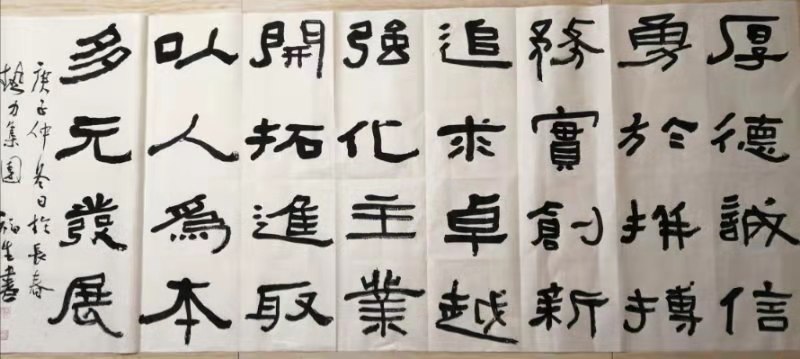 厚德誠信
勇於拼搏
務實創新
追求卓越
強化主業
開拓進取
以人為本
多元發展
庚子仲冬日於長春
熱力集團 福生書